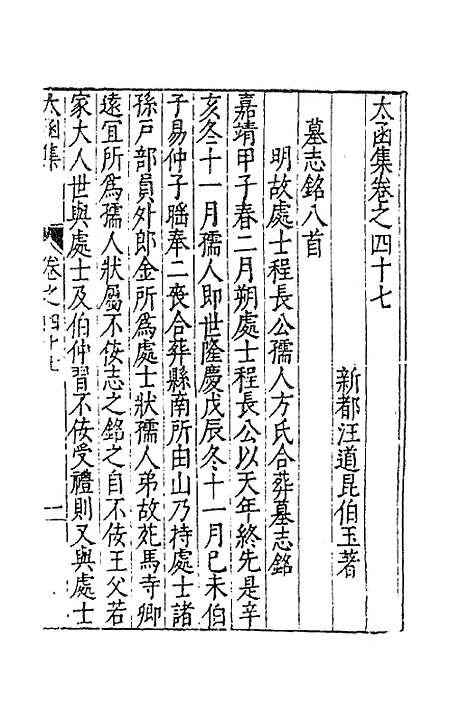 太函集卷之四十七
新都汪道昆伯玉著
墓志銘八首
明故處士程長公孺人方氏合葬墓志銘
嘉靖甲子春二月朔處士程長公以天年終先是辛
亥冬十一月孺人即世隆慶戊辰冬十一月己未伯
子易仲子暚奉二喪合葬縣南所由山乃持處士諸
孫戶部員外郎金所爲處士狀孺人弟故苑馬寺卿
遠宜所爲孺人狀屬不佞志之銘之自不佞王父若
家大人世與處士及伯仲習不佞受禮則又與處士
太函集 卷之四十七 一